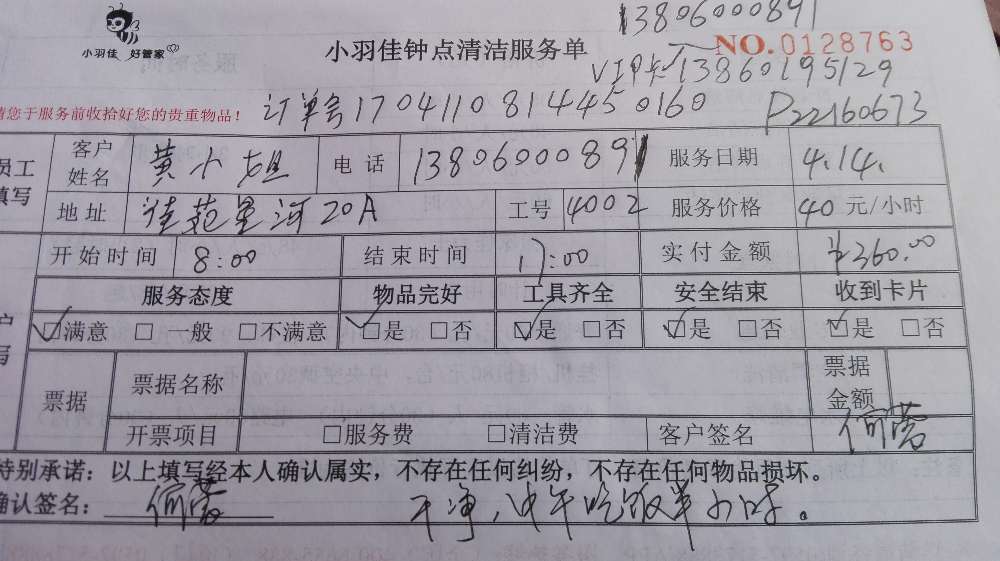 13806000891
小羽佳 好管家
小羽佳钟点清洁服务单
NO.0128763
VIP卡 13860195129
请您于服务前收拾好您的贵重物品！ 订单号170411081445 0160 P22160673
员工填写
客户姓名 黄小姐 电话 13806000891 服务日期 4.14.
地址 佳范星河20A 工号 4002 服务价格 40 元/小时
开始时间 8:00 结束时间 17:00 实付金额 ¥360.00
服务态度 物品完好 工具齐全 安全结束 收到卡片
☑满意 □一般 □不满意 ☑是 □否 ☑是 □否 ☑是 □否 ☑是 □否
票据 票据名称 票据金额
开票项目 □服务费 □清洁费 客户签名
特别承诺：以上填写经本人确认属实，不存在任何纠纷，不存在任何物品损坏。
确认签名： 干净，中午吃饭半小时。